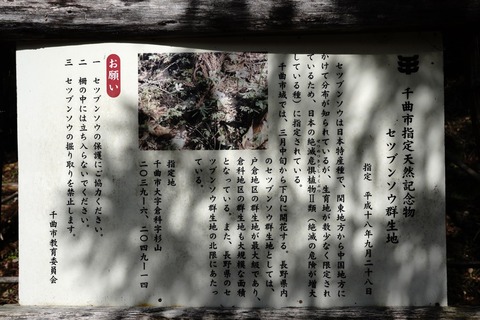 千曲市指定天然記念物
セツブンソウ群生地
指定 平成十八年九月二十八日
セツブンソウは日本特産種で、関東地方から中国地方に
かけて分布が知られているが、生育地が数少なく限定され
ているため、日本の絶滅危惧植物Ⅱ類（絶滅の危険が増大
している種）に指定されている。
千曲市域では、三月中旬から下旬に開花する。長野県内
のセツブンソウ群生地としては、
戸倉地区の群生地が最大級であり、
倉科地区の群生地も大規模な面積
となっている。また、長野県のセ
ツブンソウ群生地の北限にあたっ
ている。
指定地
千曲市大字倉科字杉山
二〇三九ー六、二〇四九ー一四
お願い
一 セツブンソウの保護にご協力ください。
二 柵の中には立ち入らないでください。
三 セツブンソウの掘り取りを禁止します。
千曲市教育委員会